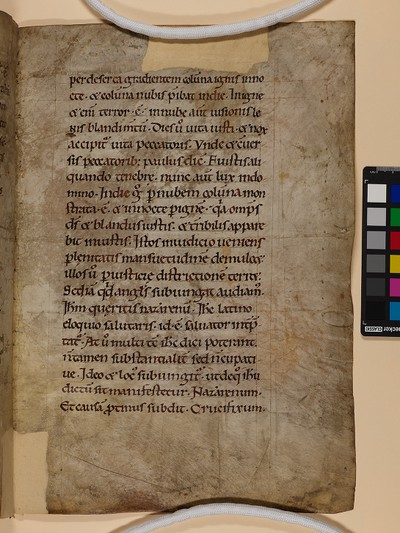 per deserta gradientem colũna ignis in no
cte. & colũna nubis p̃ibat in die. In igne
& eni terror. ẽ. in nube aut̃ uisionis le
nis blandim̃tũ. Dies ũ uita iusti. & nox
accipit̃ uita peccatoris. Unde & cuer
sis peccatorib; paulus dic̃. Fuistis ali
quando tenebre. nunc aut̃ lux in do
mino. In die g̃ p nubem colũna mon
strata. ẽ. & in nocte p igne. q̃a omp̃s
ds̃ & blandus iustis. & t̃ribilis appare
bit iniustis. Istos in iudicio ueniens
p lenitatis mansuetudine demulc&
illos ũ p iusticie districtione terr&.
Sed iã q̃d angls̃ subiungat audiam̃.
Ihm̃ queritis nazarenũ. Ihc̃ latino
eloquio salutaris. id. ẽ. saluator int̃p̃
tat̃. At ũ multi tc̃ ihc̃ dici poterant.
n̄ tamen substantialit̃ sed nc̃upati
ue. Ideo & loc̃ subiungit̃. ut de q̃ ihũ
dictũ sit manifestetur. Nazarenum.
Et causã p̃tinus subdit. Crucifixum.